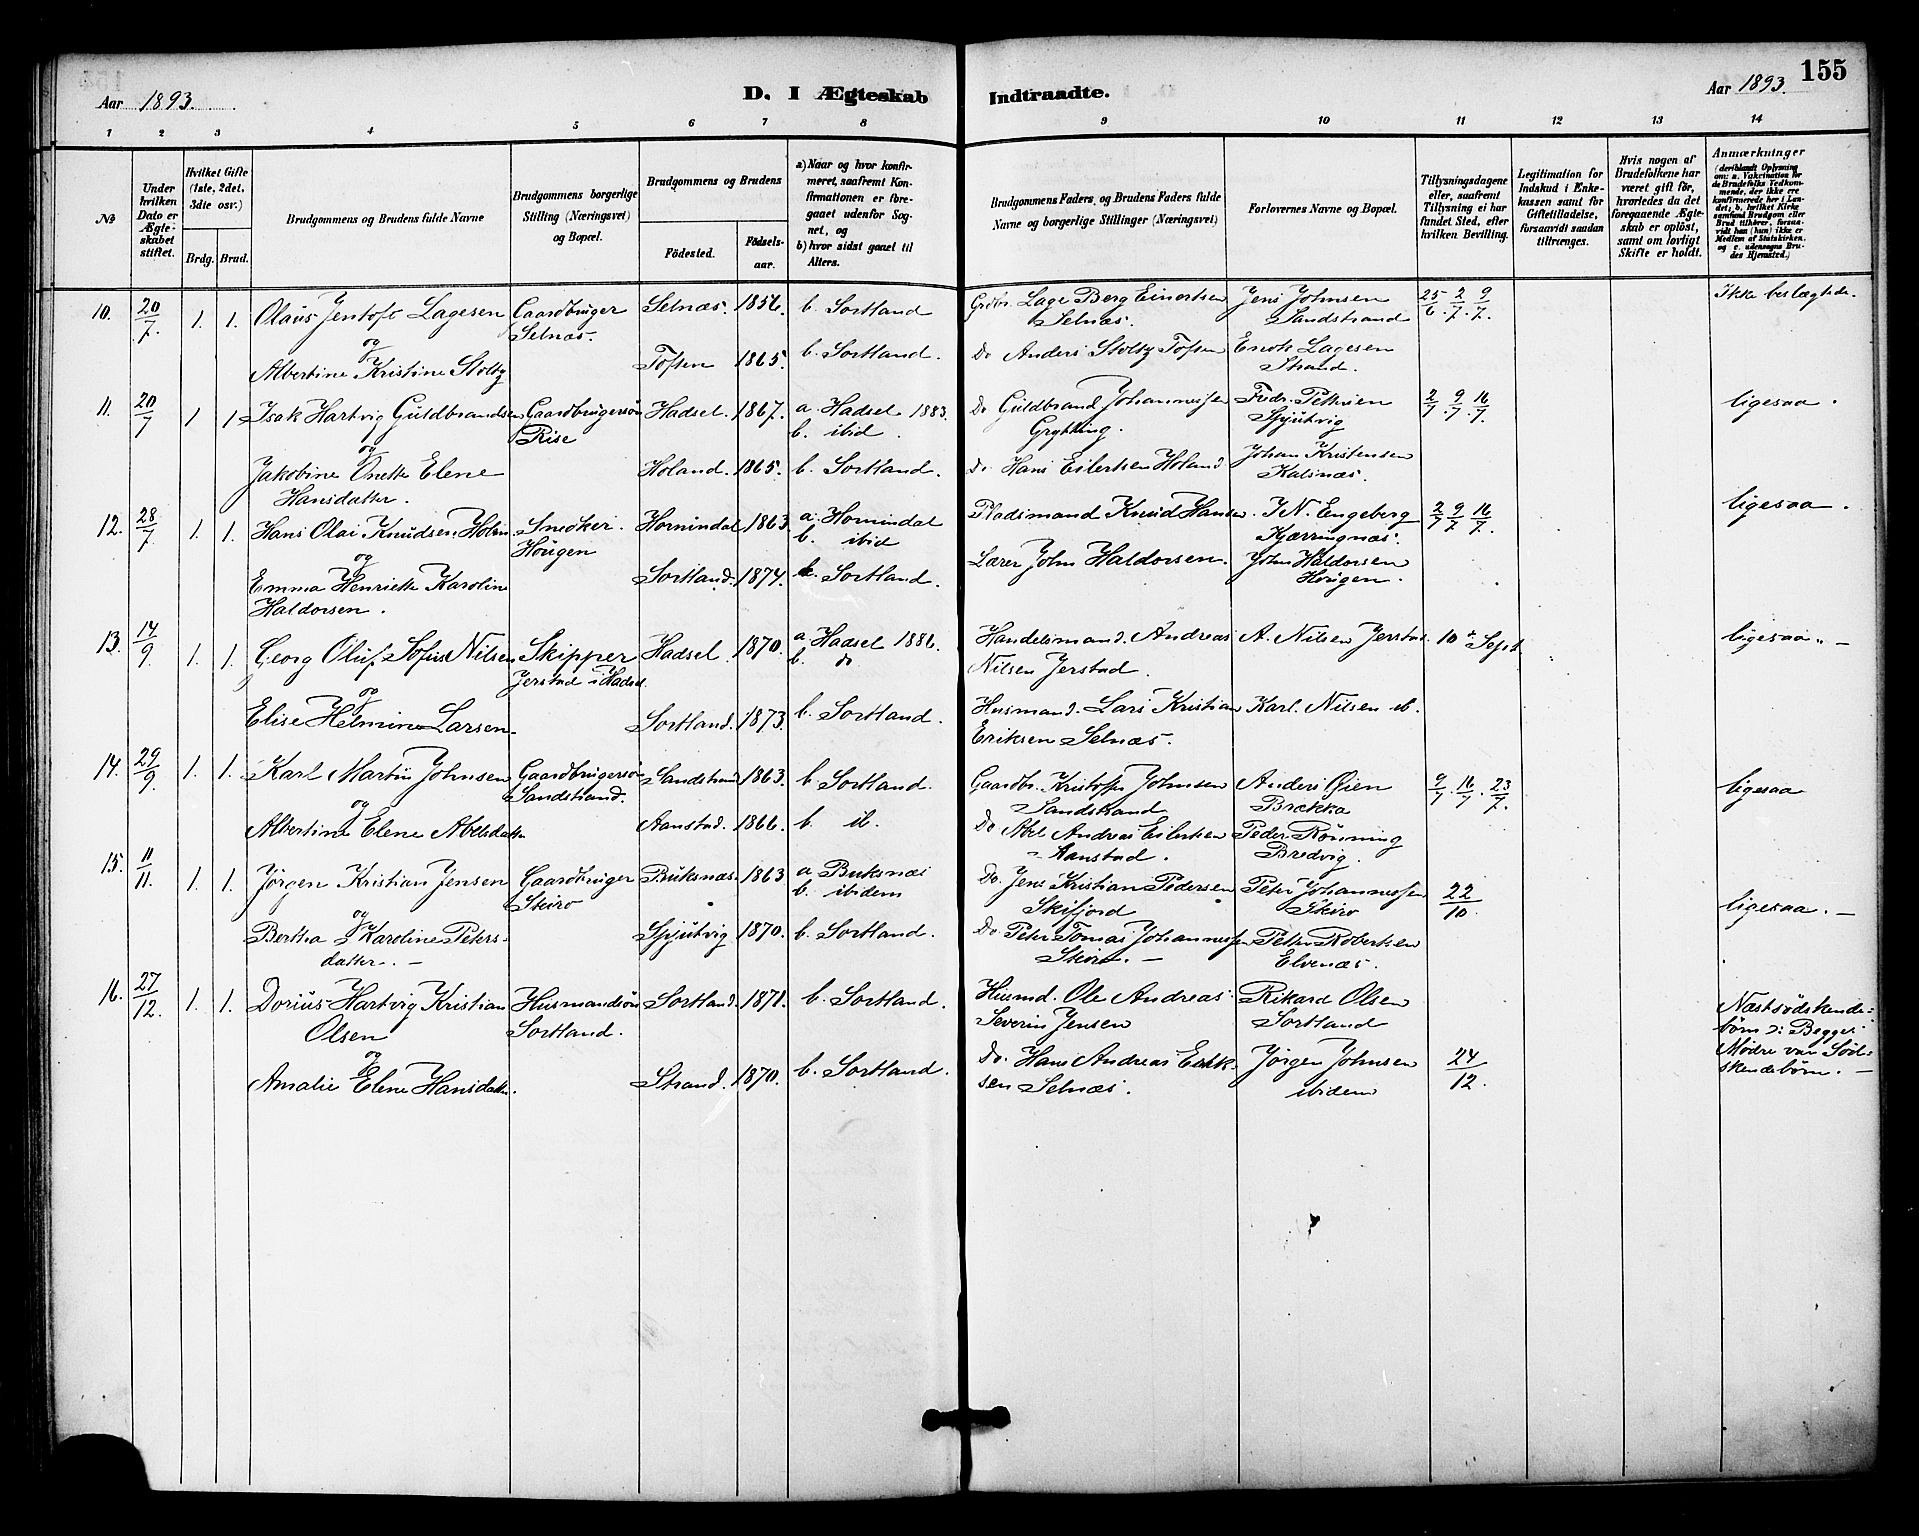 155
Aar 1893.
D. I Ægteskab Indtraadte.
Aar 1893.
1 2 3 4 5 6 7 8 9 10 11 12 13 14
№
Under hvilken Dato er Ægteskabet stiftet.
Hvilket Gifte (1ste, 2det, 3die osv.)
Brdg. Brud.
Brudgommens og Brudens fulde Navne
Brudgommens borgerlige Stilling (Næringsvei) og Bopæl.
Brudgommens og Brudens
Födested.
Födselsaar.
a) Naar og hvor konfirmeret, saafremt Konfirmationen er foregaaet udenfor Sognet, og
b) hvor sidst gaaet til Alters.
Brudgommens Faders, og Brudens Faders fulde Navne og borgerlige Stillinger (Næringsvei)
Forlovernes Navne og Bopæl.
Tillysningsdagene eller, saafremt Tillysning ei har fundet Sted, efter hvilken Bevilling.
Legitimation for Indskud i Enkekassen samt for Giftetilladelse, forsaavidt saadan tiltrænges.
Hvis nogen af Brudefolkene har været gift för, hvorledes da det foregaaende Ægteskab er oplöst, samt om lovligt Skifte er holdt.
Anmærkninger
(deriblandt Oplysning om: a. Vakcination for de Brudefolks Vedkommende, der ikke ere konfirmerede her i Landet, b. hvilket Kirkesamfund Brudgom eller Brud tilhörer, forsaavidt han (hun) ikke er Medlem af Statskirken, og c. udensogns Brudes Hjemsted.)
10. 20/7. 1. 1. Olaus Jentoft Lagesen Gaardbruger Selnæs. 1856. b. Sortland Grdbr. Lage Berg Einertsen Jens Johnsen 25/6. 2/7. 9/7. Ikke beslægtede.
Selnæs. Selnæs. Sandstrand
og
Albertine Kristine Stoltz Toften 1865. b. Sortland. Do Anders Stoltz Toften Enok Lagesen
Strand.
11. 20/7 1 1 Isak Hartvig Guldbrandsen Gaardbrugersön Hadsel. 1867. a. Hadsel 1883. Do Guldbrand Johannessen Fredr. Pettersen 2/7. 9/7. 16/7. ligesaa.
Rise b. ibid. Grytting. Spjutvig
og
Jakobine Anette Elene Holand. 1865. b. Sortland. Do Hans Eilertsen Holand Johan Kristensen
Hansdatter. Kalsnæs.
12. 28/7 1. 1. Hans Olai Knudsen Holm Snedker. Hornindal 1863. a. Hornindal Pladsmand Knud Hansen. I N. Engeberg 2/7 9/7. 16/7. ligesaa.
Hougen b. ibid Kjærringnæs.
og
Emma Henriette Karoline Sortland. 1874. b. Sortland. Lærer John Haldorsen. John Haldorsen
Haldorsen. Hougen.
13. 14/9. 1. 1. Georg Oluf Sofus Nilsen Skipper Hadsel. 1870. a. Hadsel 1886. Handelsmand Andreas A. Nilsen Jerstad. 10de Sept ligesaa. —
Jerstad i Hadsel. b. do Nilsen Jerstad.
og
Elise Helmine Larsen. Sortland. 1873. b. Sortland. Husmand. Lars Kristian Karl. Nilsen ib.
Eriksen Selnæs.
14. 29/9. 1. 1. Karl Martin Johnsen Gaardbrugersön Sandstrand 1863. b. Sortland. Gaardbr. Kristofer Johnsen Anders Öien 9/7. 16/7. 23/7. ligesaa
Sandstrand. Sandstrand Brækka
og
Albertine Elene Abelsdatter Aanstad. 1866. b. ib. Do Abel Andreas Eilertsen Peder Rönning
Aanstad. Bredvig.
15. 11/11. 1. 1. Jörgen Kristian Jensen Gaardbruger Buksnæs. 1863 a Buksnæs Do. Jens Kristian Pedersen Peter Johannessen 22/10. ligesaa. —
Steiro b. ibidem Skifjord Steiro
og
Bertha Karoline Peters- Spjutvig 1870. b. Sortland. Do. Peter Tomas Johannessen Petter Robertsen
datter. — Steiro. — Elvenæs.
16. 27/12. 1. 1. Dorius Hartvig Kristian Husmandssön Sortland. 1871. b. Sortland. Husmd. Ole Andreas Rikard Olsen Næstsödskende-
Olsen Sortland. Severin Jensen Sortland börn ɔ: Begges
og Mödre var Söd-
Amalie Elene Hansdatter. Strand. 1870. b. Sortland. Do. Hans Andreas Erik- Jörgen Johnsen 24/12. skendebörn. —
sen Selnæs. ibidem